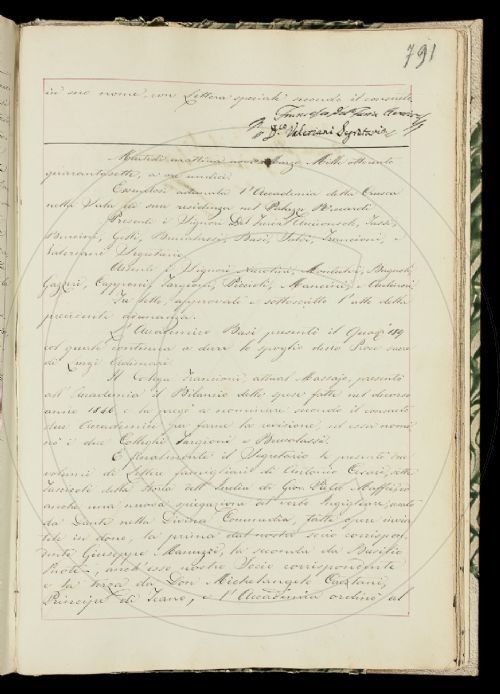 791
in suo nome, con Lettera speciale secondo il consueto
Francesco Del Furia
D.co Valeriani Segretario
Martedì mattina nove Marzo Mille ottocento
quarantasette, a ore undici.
Essendosi adunata l'Accademia della Crusca
nella Stanza di sua residenza nel Palazzo Riccardi
Presenti i Signori Del Furia
Bencini, Gotti, Brucalassi, Basi, Franceschi, e
Valeriani Segretario
Assenti i Signori Niccolini, Montalvi, Bagnoli,
Gazzeri, Capponi, Targioni, Becucci, Mancini, e
Fu letto, approvato e sottoscritto l'atto della
precedente adunanza.
L'Accademico Basi presentò il Quad.
col quale continua a dare lo spoglio delle Prose sacre
di Luigi
Il Collega Francioni, attual Massajo, presentò
all'Accademia il Bilancio delle spese fatte nel decorso
anno 1846 e la pregò a nominare secondo il consueto
due Accademici per farne la revisione, ed essa nomi
nò i due Colleghi Targioni e Brucalassi.
E finalmente il Segretario le presentò due
volumi di Lettere famigliari di Antonio Cesari, otto
Fascicoli della Storia dell'India di Gio: Pietro Maffei, e
anche una nuova spiegazione del verbo Ingigliare, usato
da Dante nella Divina Commedia, fatte opere invia
tele in dono, la prima dal nostro socio corrispon
dente Giuseppe Manuzzi, la seconda da Basilio
Puoti, anch'esso nostro Socio corrispondente
e la terza da Don Michelangelo Caetani,
Principe di Teano, e l'Accademia ordinò al